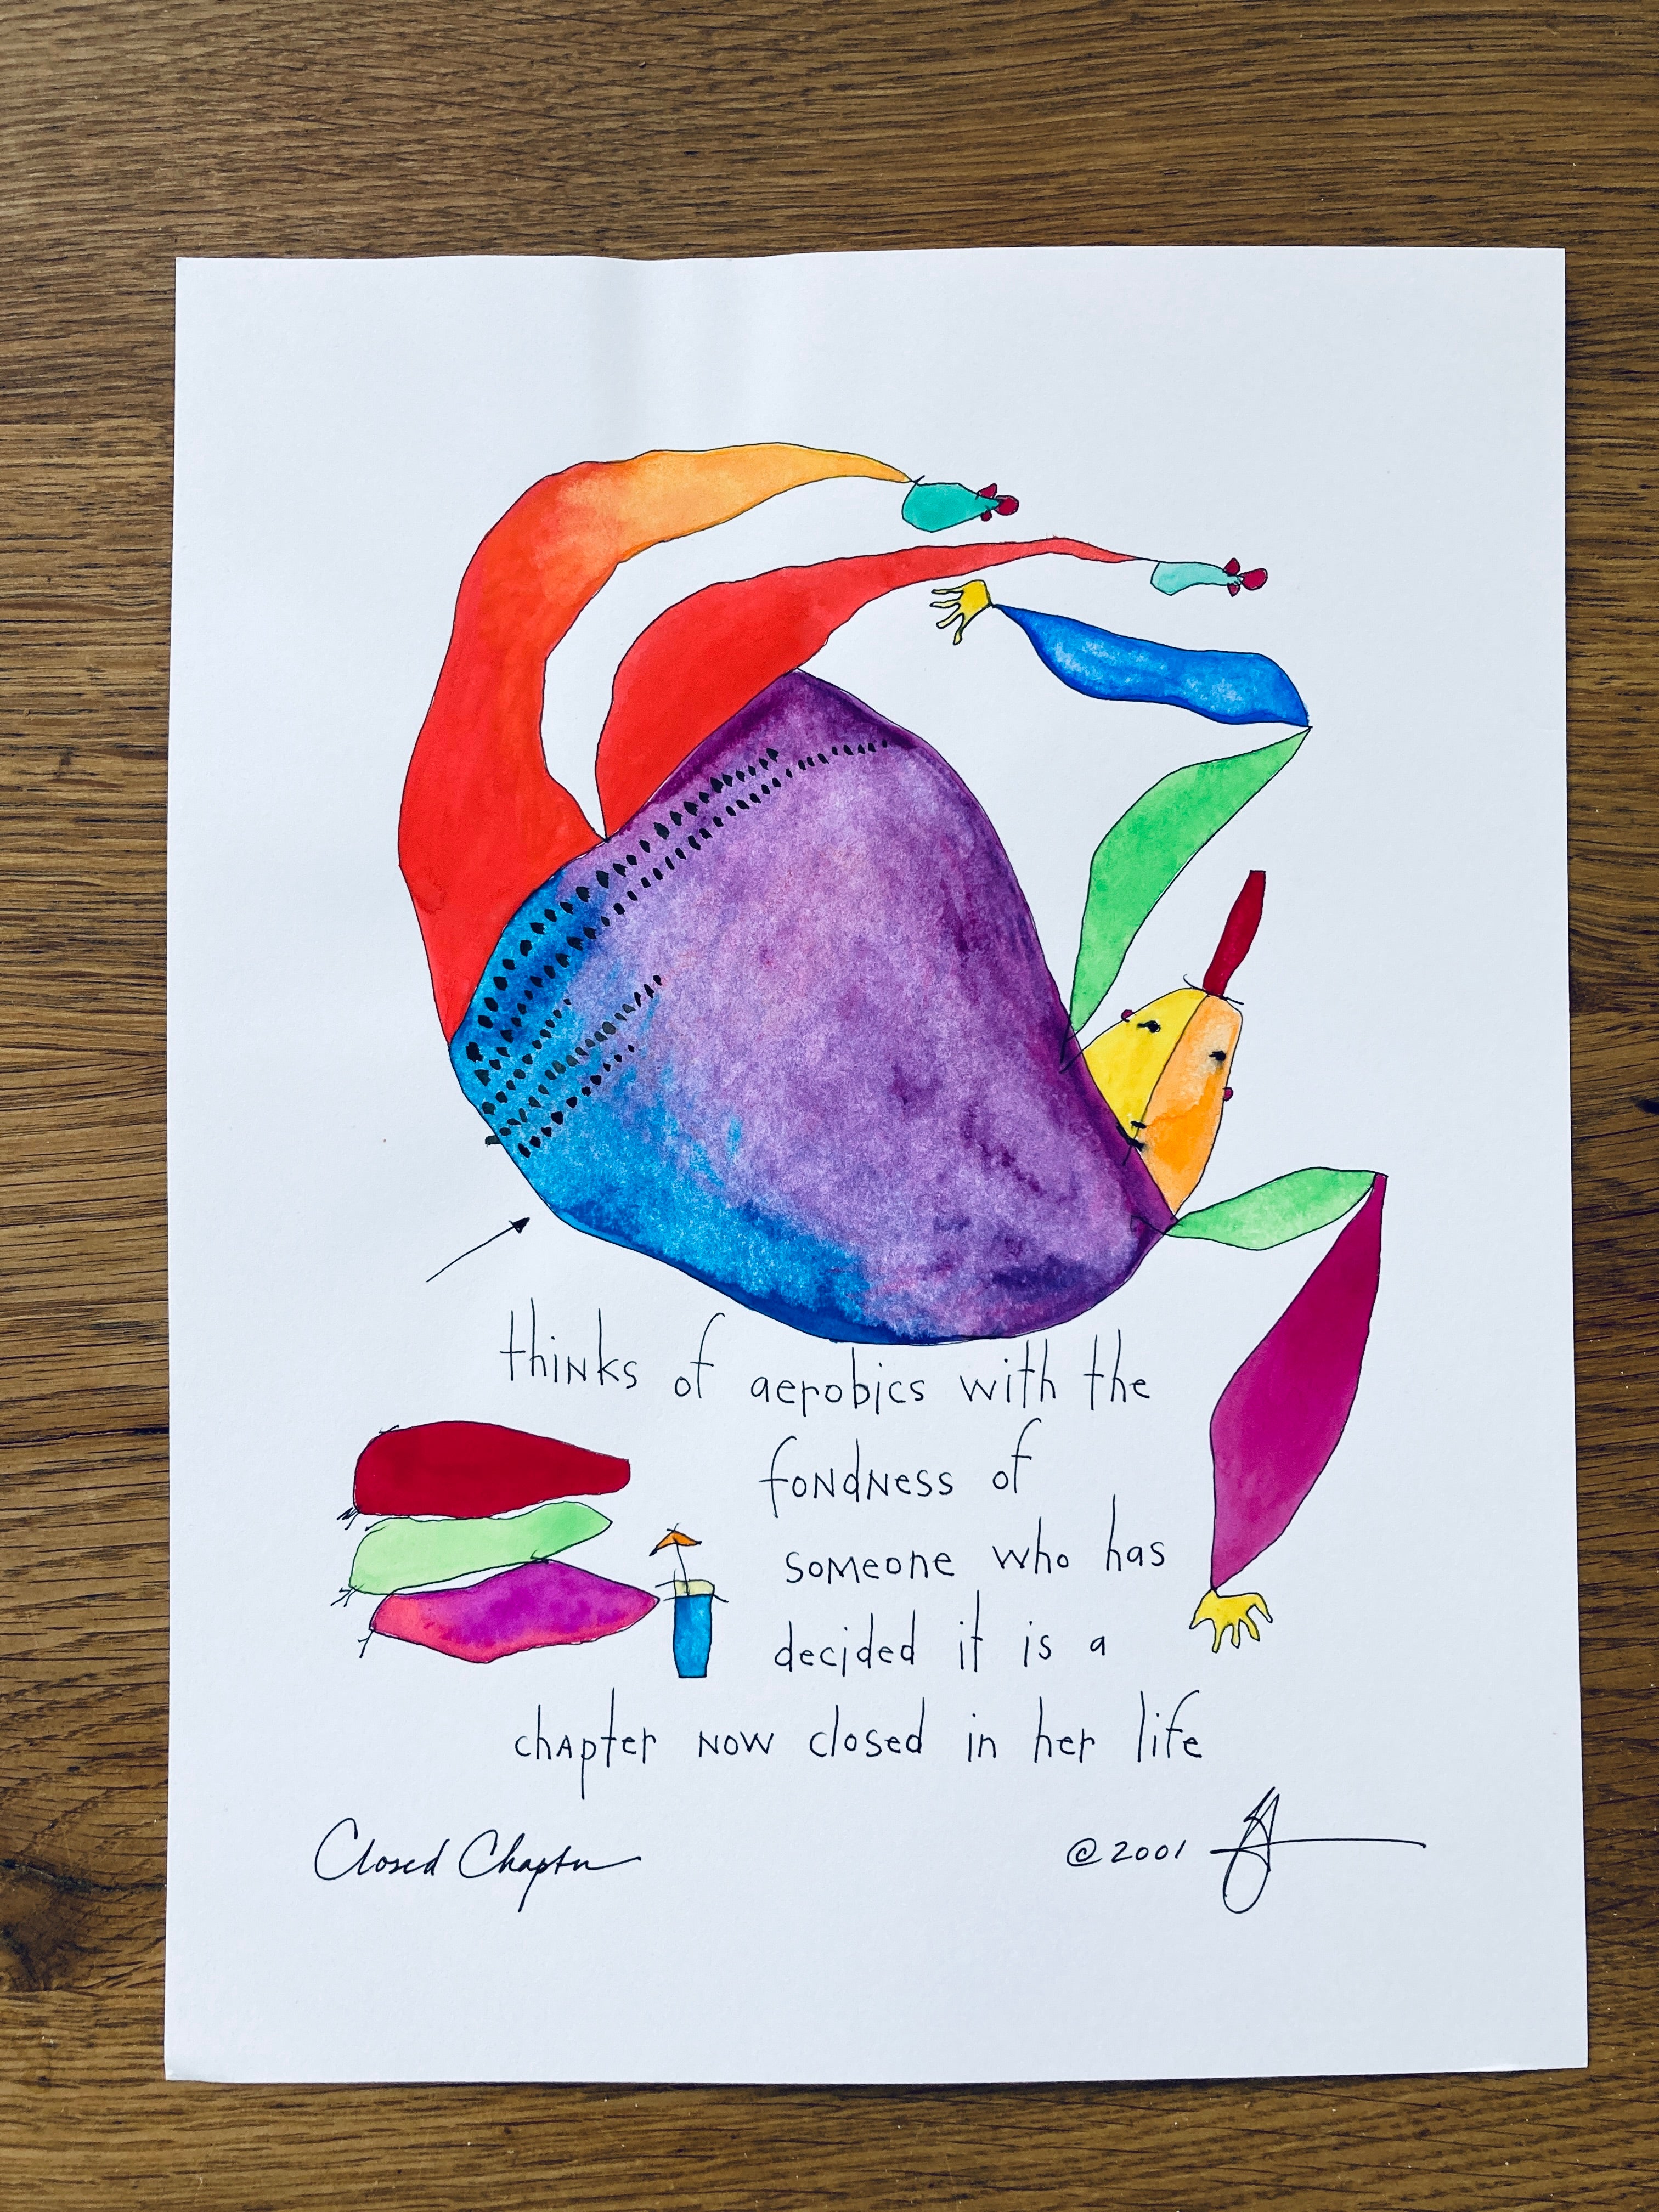 thinks of aerobics with the
fondness of
someone who has
decided it is a
chapter now closed in her life
Closed Chapter
© 2001